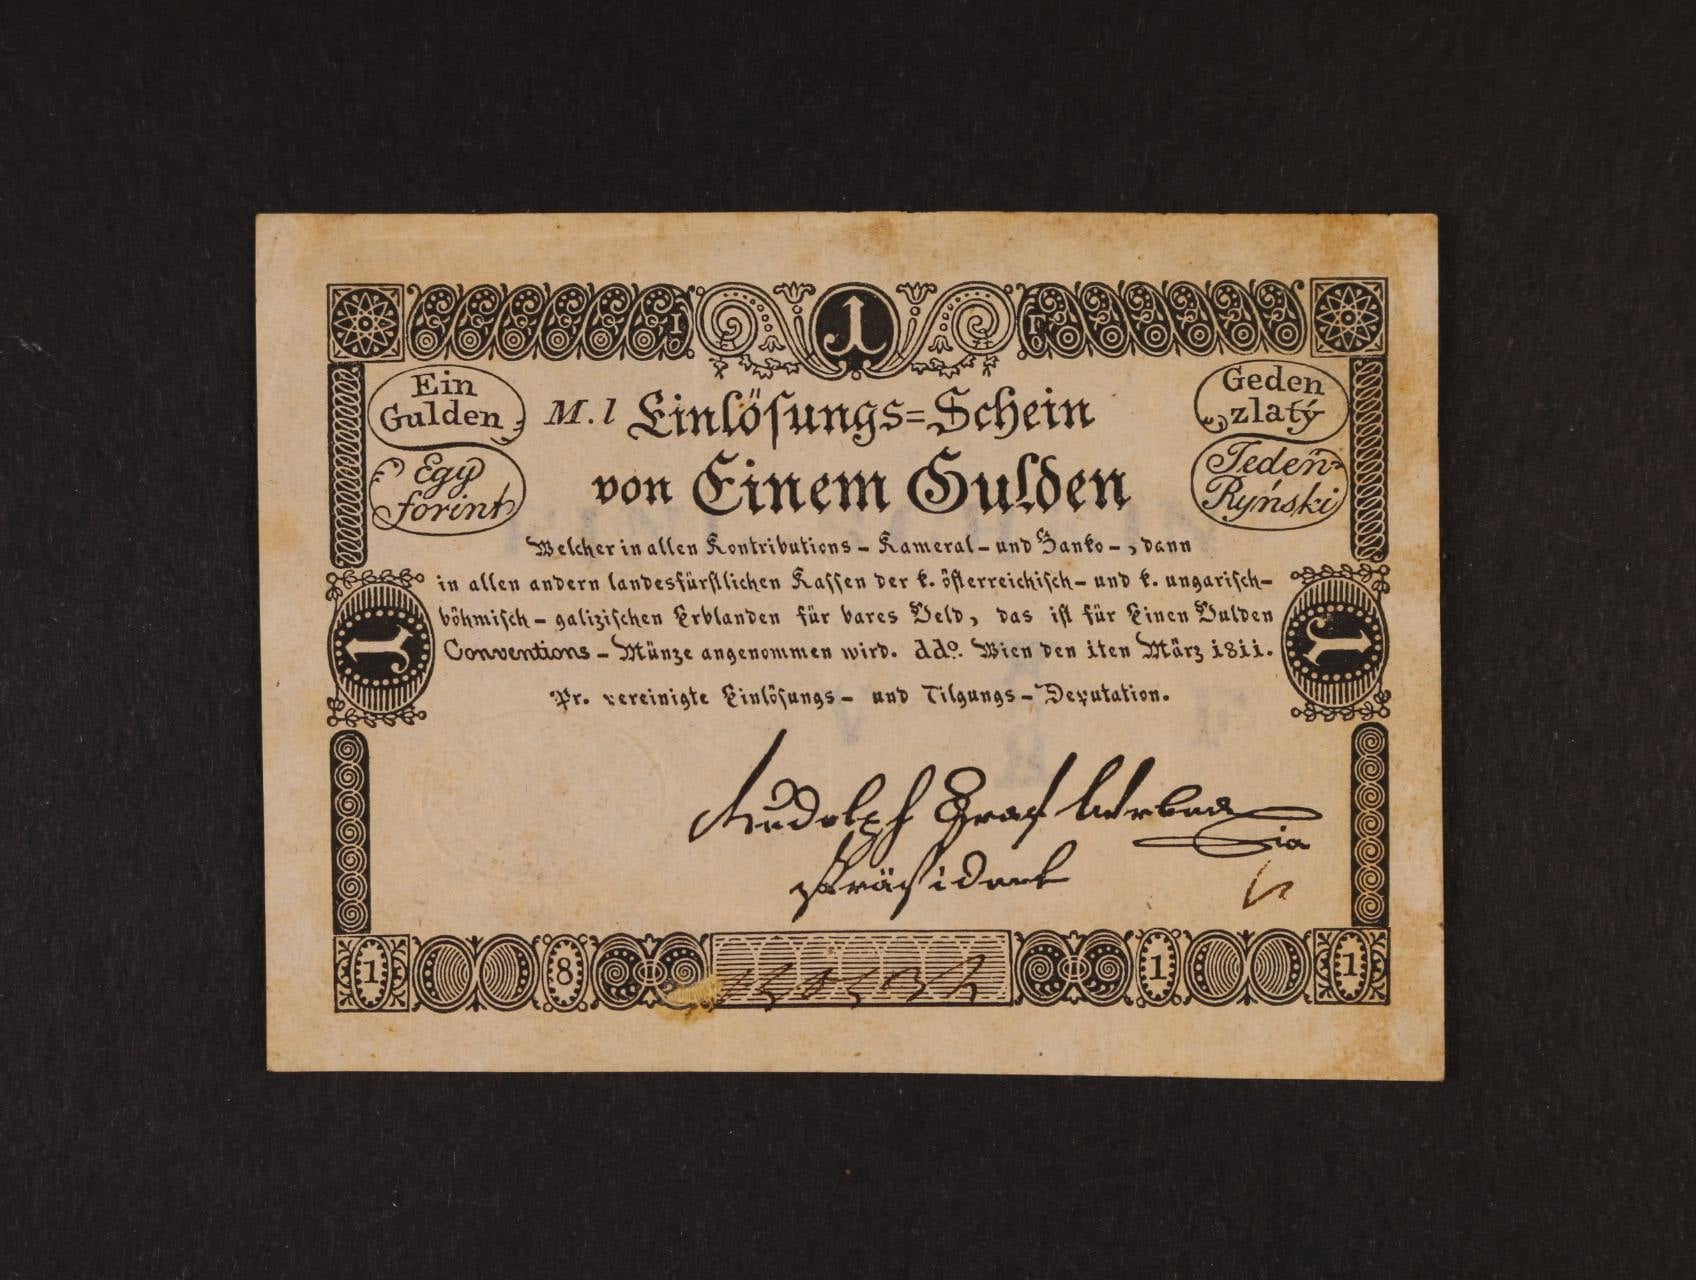 1
I I
Ein
Gulden
Egy
forint
Geden
zlatý
Jedeń
Ryński
M. 1 Einlösungs=Schein
von Einem Gulden
Welcher in allen Kontributions - Kameral - und Banko -, dann
in allen andern landesfürstlichen Kassen der k. österreichisch - und k. ungarisch -
böhmisch - galizischen Erblanden für bares Geld, das ist für Einen Gulden
Conventions - Münze angenommen wird. ddo. Wien den 1ten März 1811.
Pr. vereinigte Einlösungs - und Tilgungs - Deputation.
1 1
Rudolph Graf Wrbna
Präsident
1 8 1 1